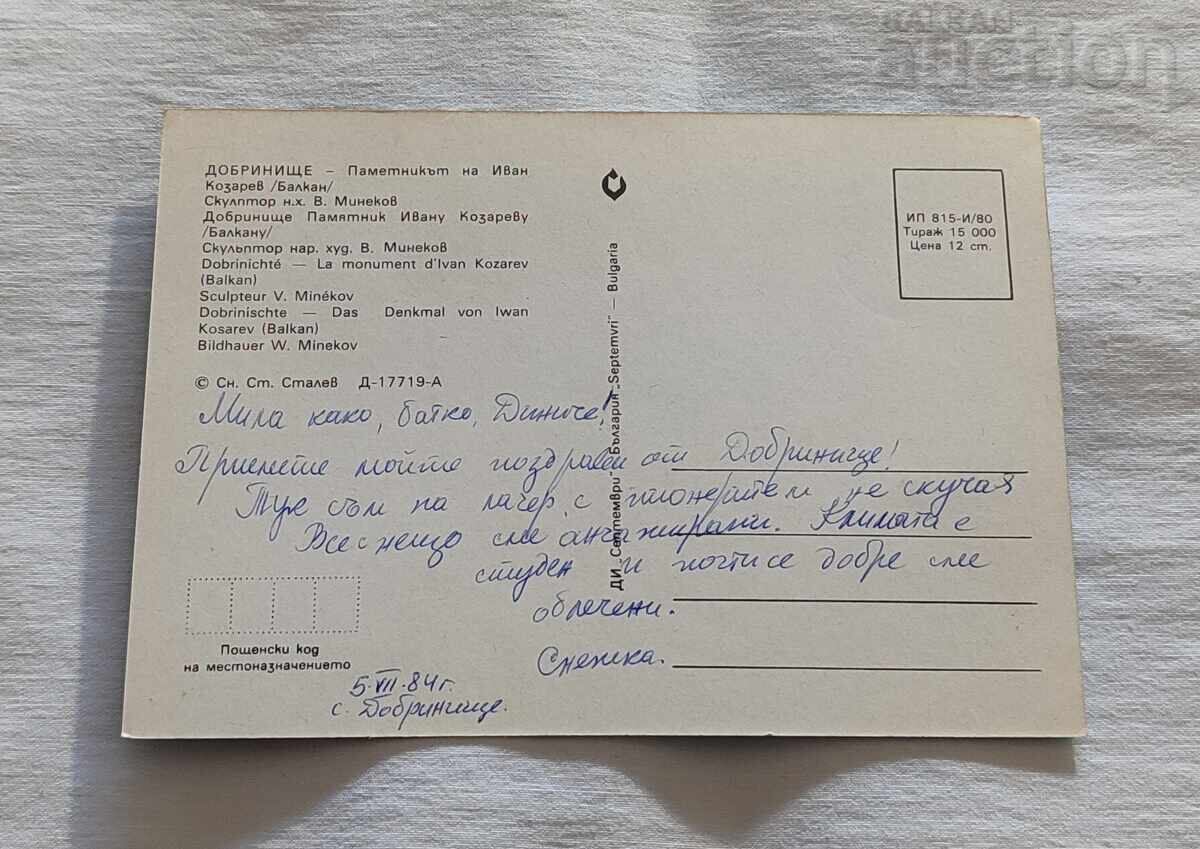 BALKAN
auction
ДОБРИНИЩЕ – Паметникът на Иван
Козарев /Балкан/
Скулптор н.х. В. Минеков
Добринище Памятник Ивану Козареву
/Балкану/
Скульптор нар. худ. В. Минеков
Dobrinichté — La monument d'Ivan Kozarev
(Balkan)
Sculpteur V. Minékov
Dobrinischte — Das Denkmal von Iwan
Kosarev (Balkan)
Bildhauer W. Minekov
© Сн. Ст. Сталев Д-17719-А
ДИ „Септември" България „Septemvri" — Bulgaria
ИП 815-И/80
Тираж 15 000
Цена 12 ст.
Мила како, батко, Диниче!
Приемете мойте поздрави от Добринище!
Тук съм на лагер с пионерите и не скучая
Все с нещо сме ангажирани. Климата е
студен и почти се добре сме
облечени.
Снежка.
Пощенски код
на местоназначението
5.VII.84 г.
с. Добринище.